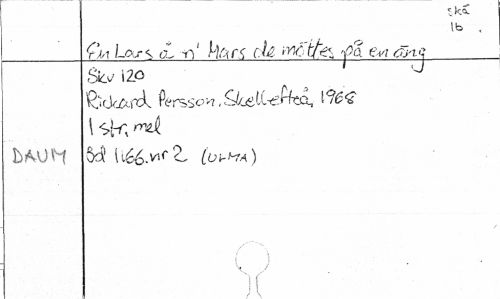 skä
16.
En Lars å n' Mars de möttes på en äng
Skv 120
Rickard Persson, Skellefteå, 1968
1 str, mel
DAUM Bd 1166. nr 2 (ULMA)